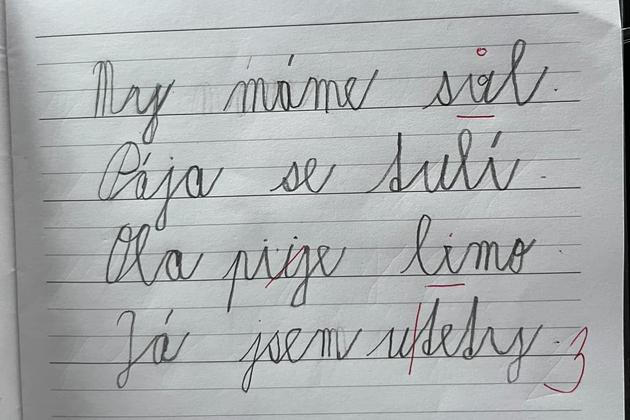 My máme sůl.
Pája se tulí.
Ola pije limo.
Já jsem u|tety. 3